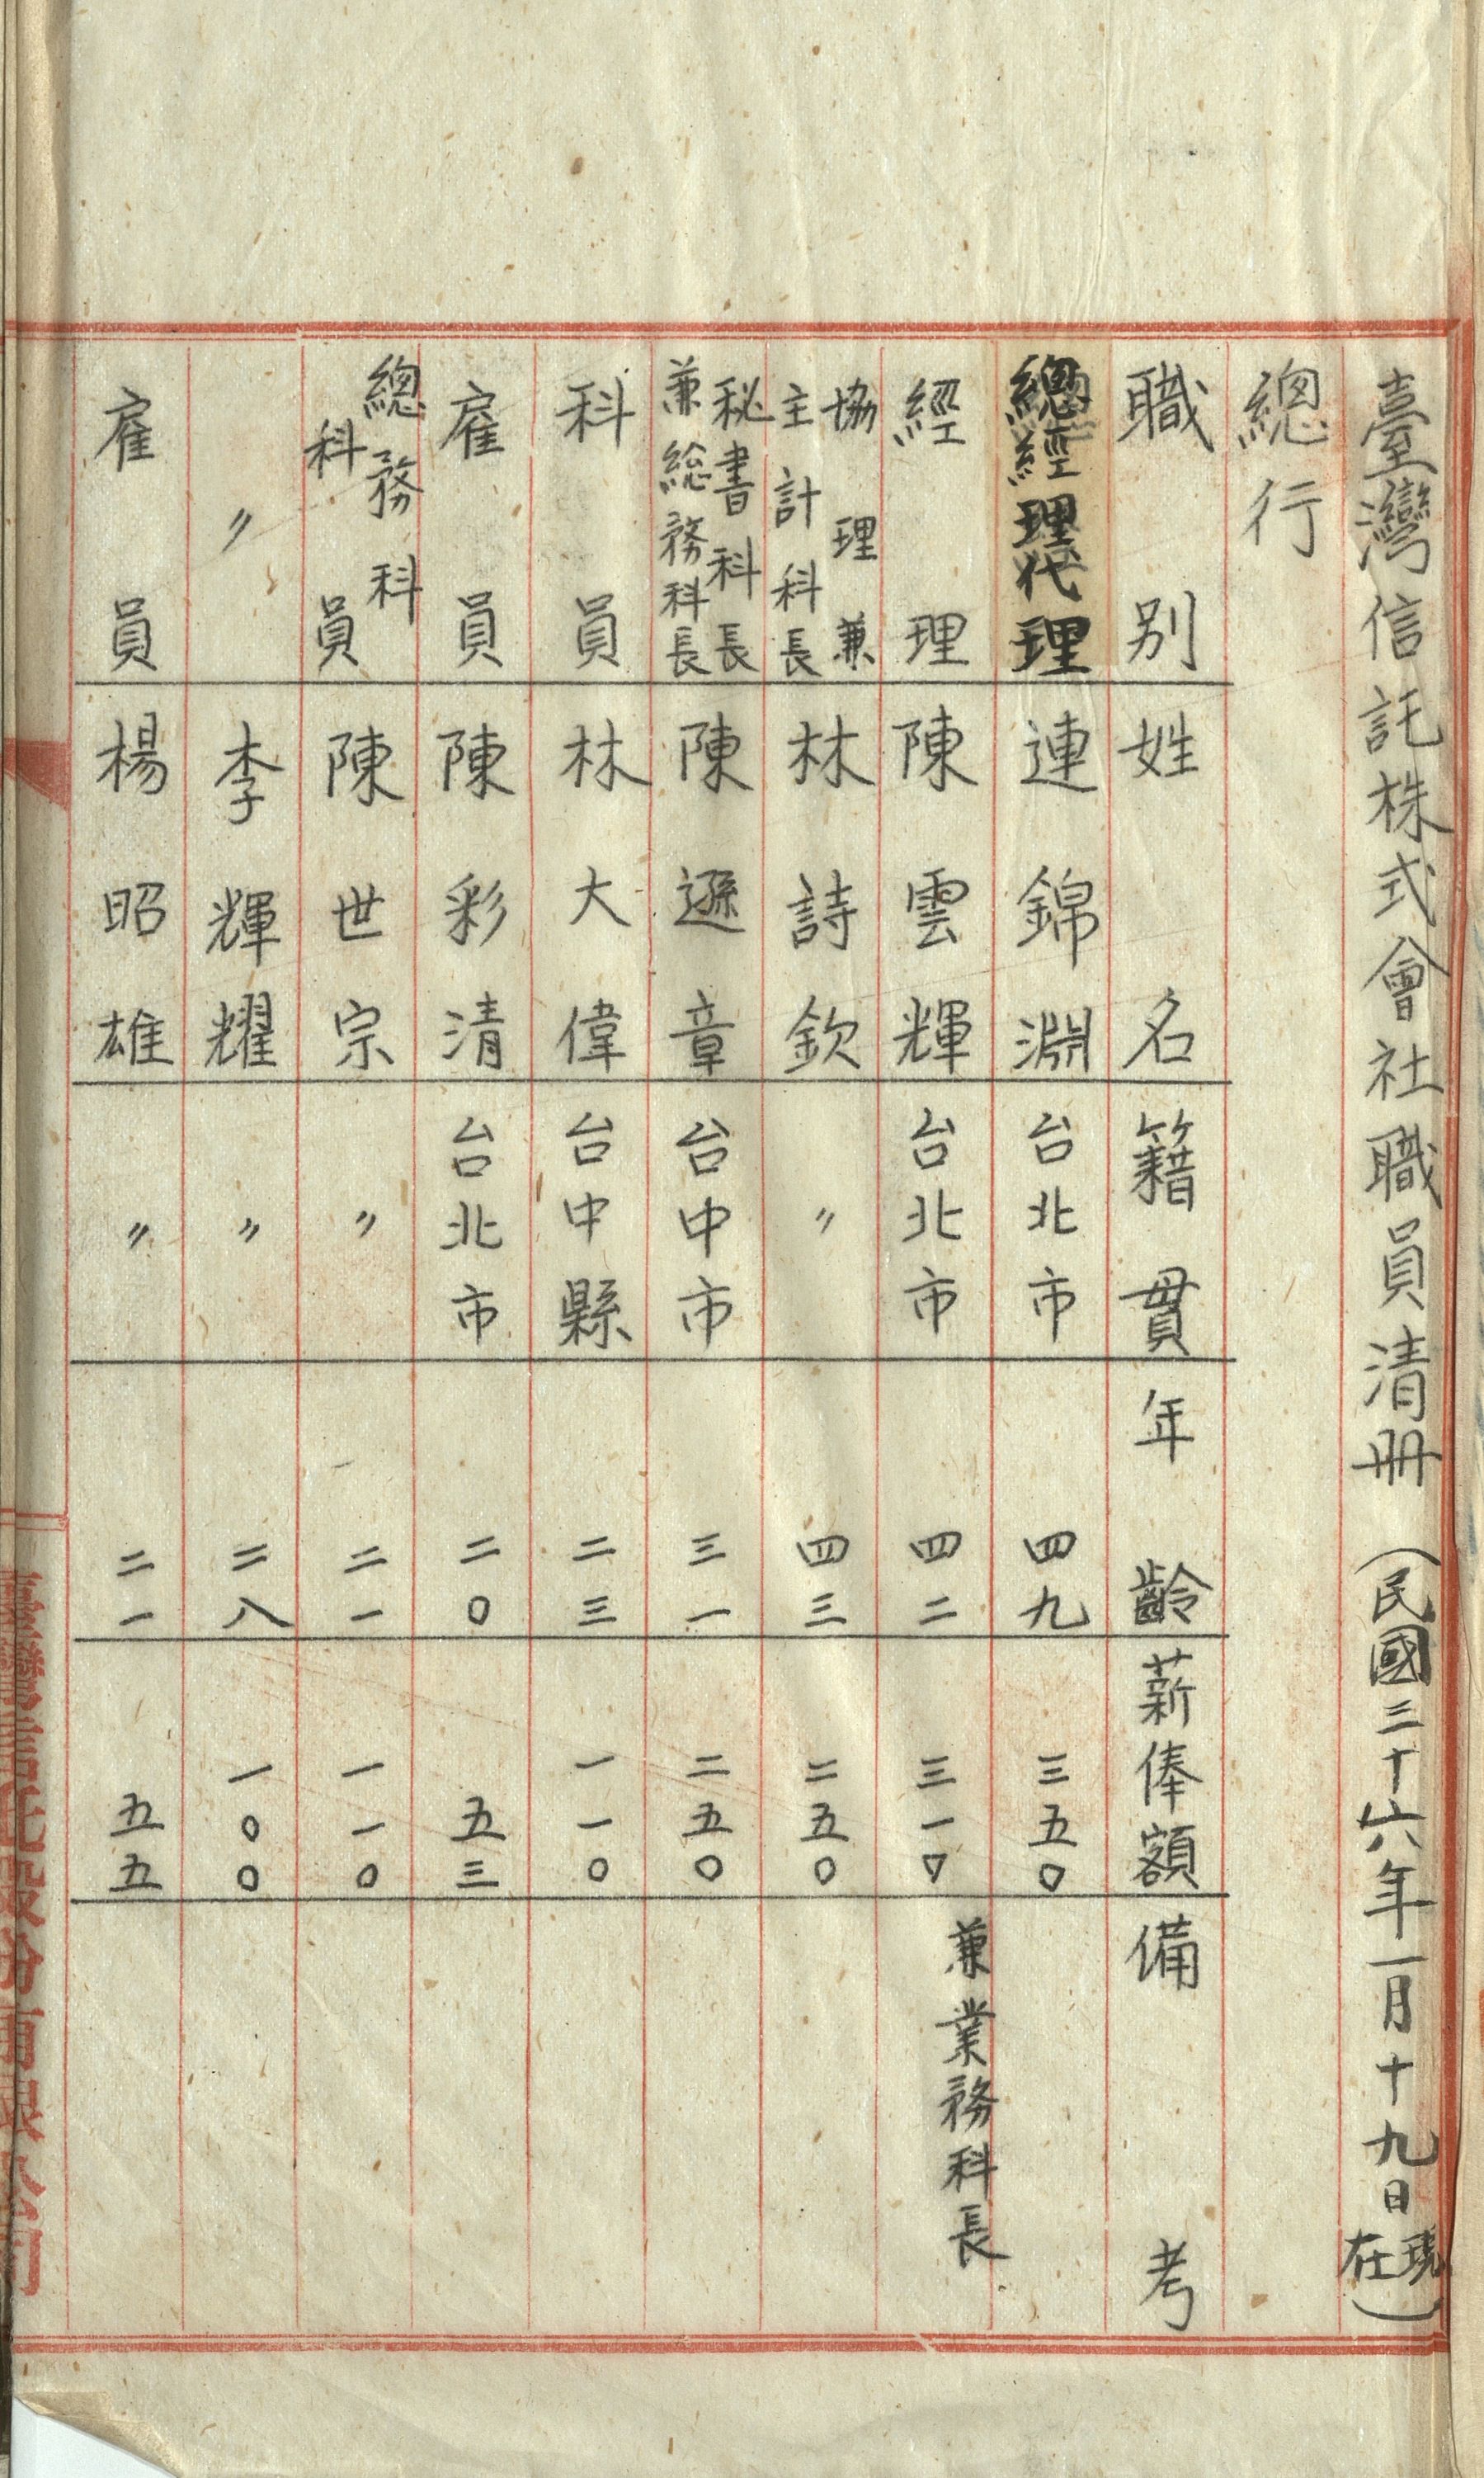 臺灣信託株式會社職員清册（民國三十六年一月十九日現在）
總行
職別 姓名 籍貫 年齡 薪俸額 備考
總經理代理 連錦淵 台北市 四九 三五〇
經理 陳雲輝 台北市 四二 三一〇 兼業務科長
協理兼主計科長 林詩欽 〃 四三 二五〇
秘書科長兼総務科長 陳遜章 台中市 三一 二五〇
科員 林大偉 台中縣 二三 一一〇
雇員 陳彩清 台北市 二〇 五三
總務科科員 陳世宗 〃 二一 一一〇
〃 李輝耀 〃 二八 一〇〇
雇員 楊昭雄 〃 二一 五五